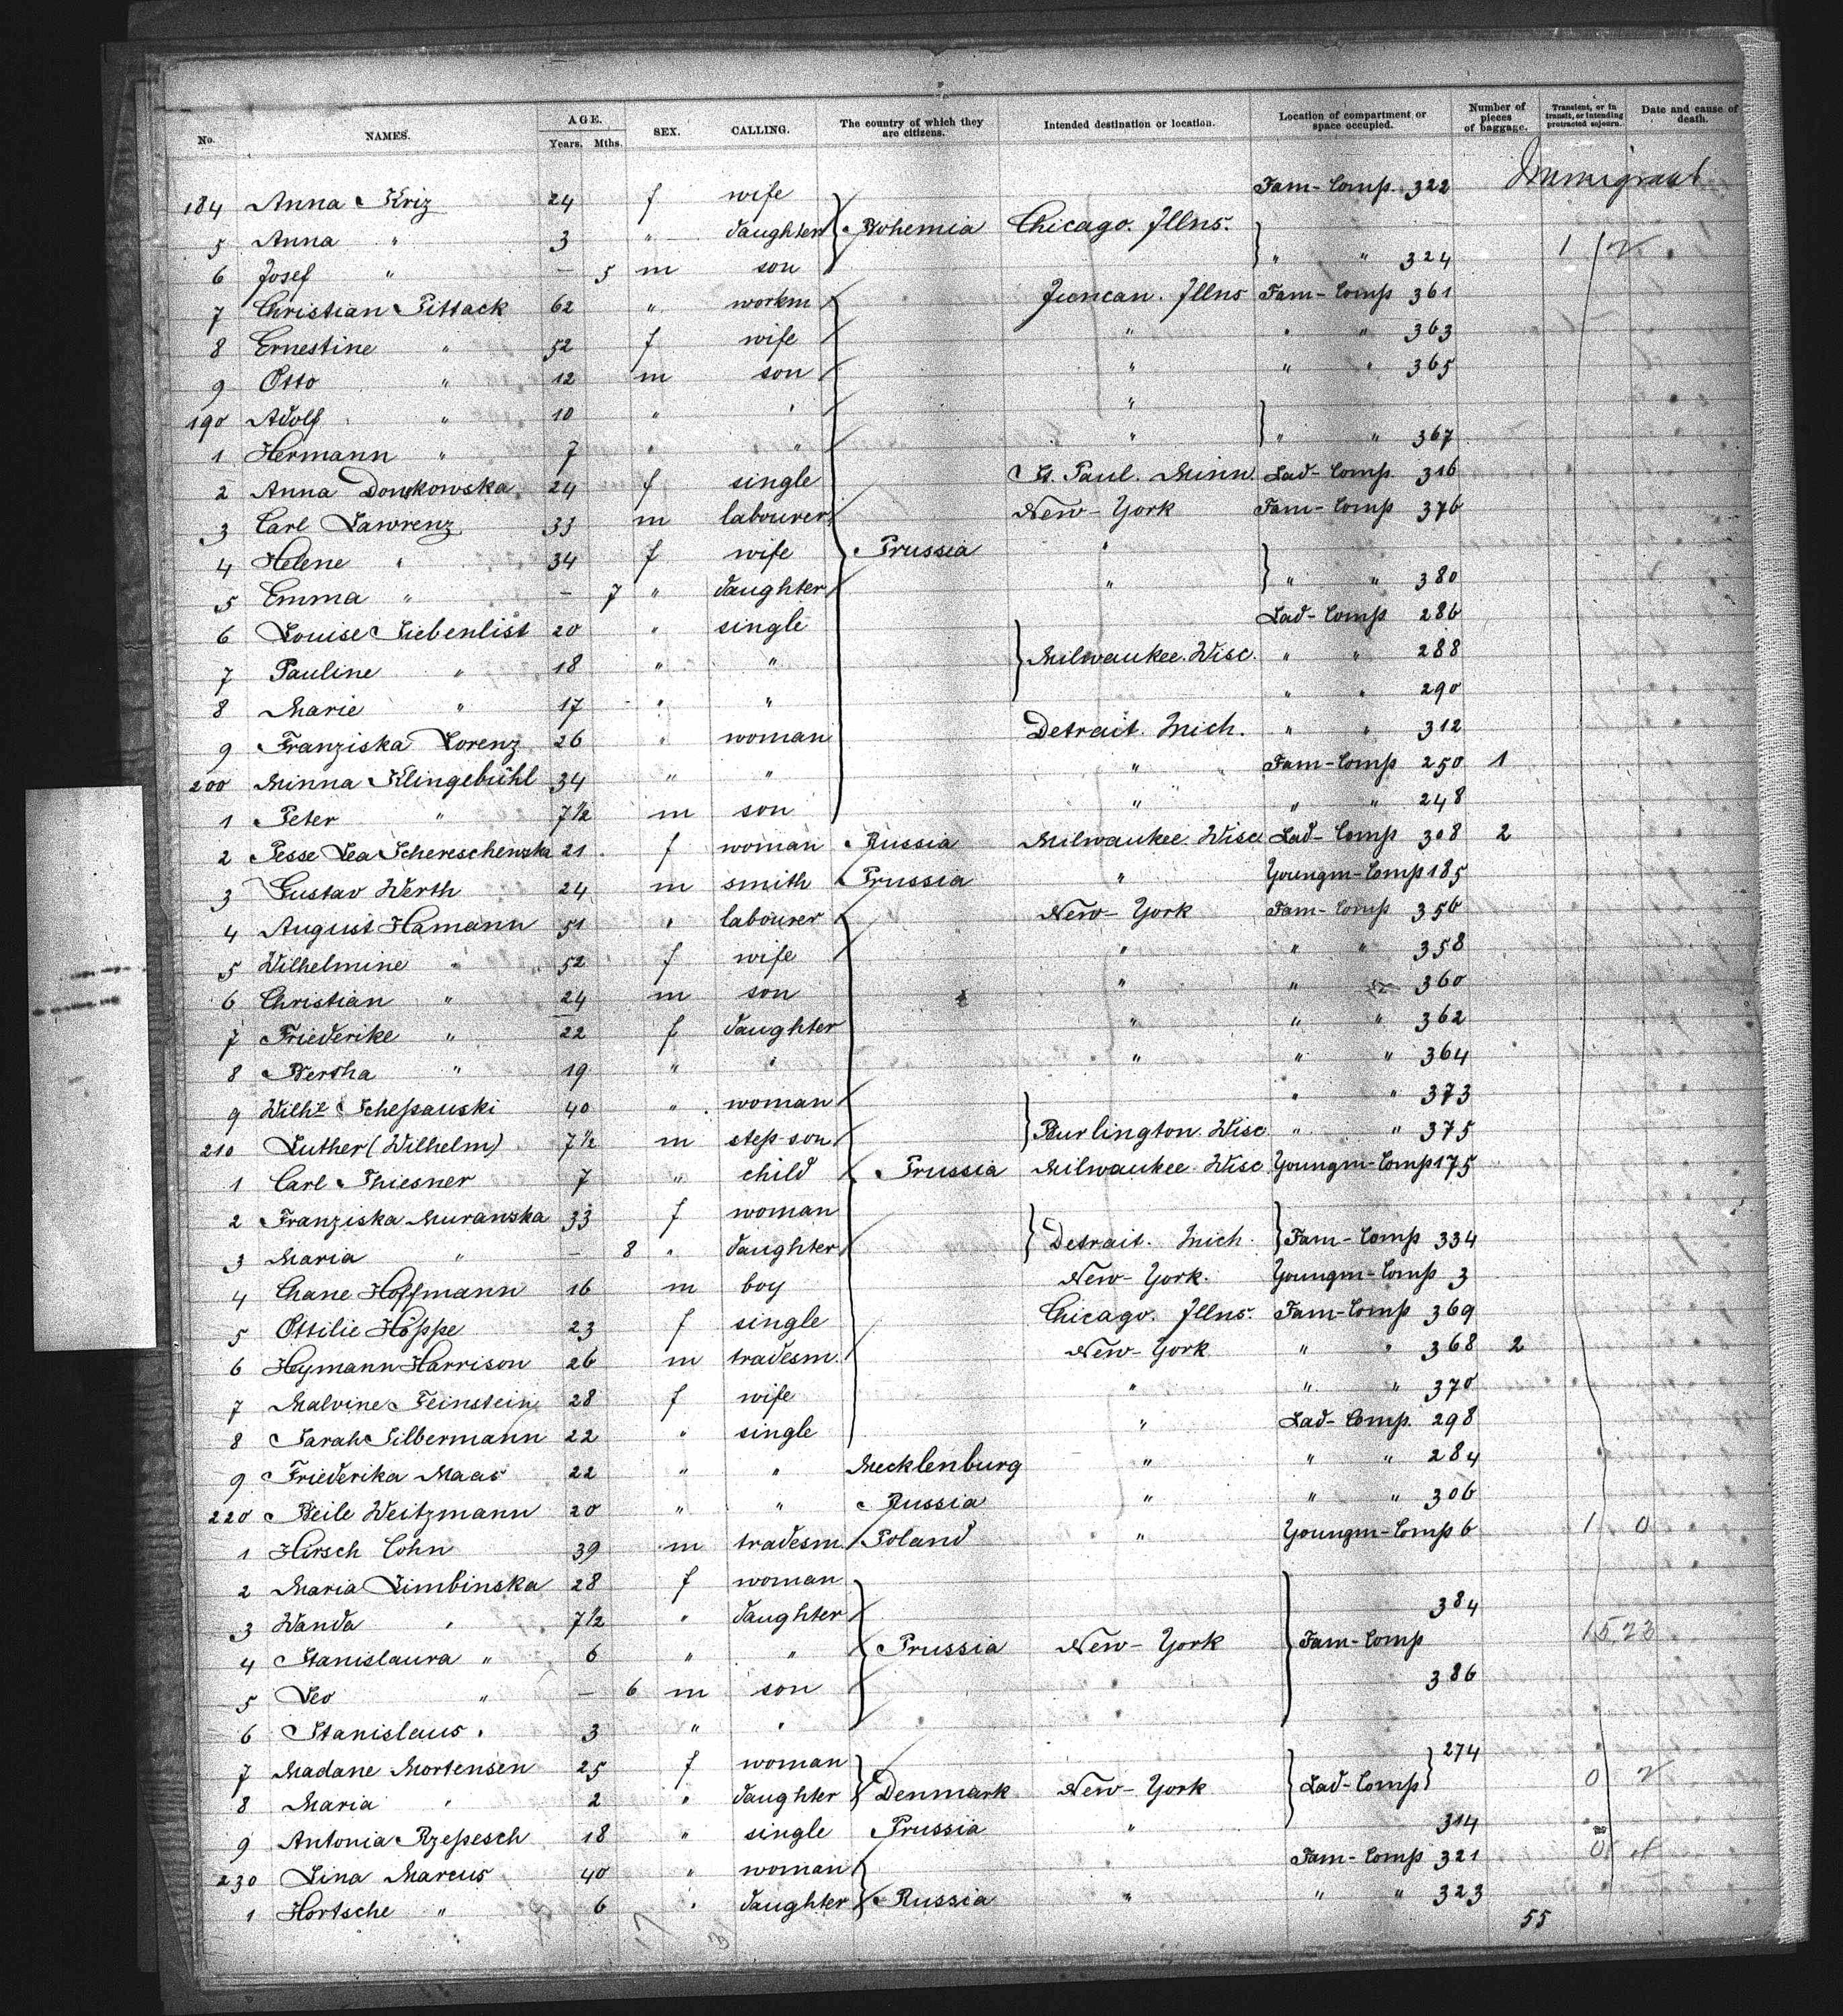 No. NAMES. AGE. Years. Mths. SEX. CALLING. The country of which they are citizens. Intended destination or location. Location of compartment or space occupied. Number of pieces of baggage. Transient, or in transit, or intending protracted sojourn. Date and cause of death.
184 Anna Kriz 24 f wife Fam-Comp. 322 Immigrant
5 Anna " 3 " daughter Bohemia Chicago. Illns.
6 Josef " – 5 m son " " 324 1
7 Christian Pittack 62 " workm Juncan. Illns Fam-Comp 361
8 Ernestine " 52 f wife " " " 363
9 Otto " 12 m son " " " 365
190 Adolf " 10 " " "
1 Hermann " 7 " " " " " 367
2 Anna Donskowska 24 f single St. Paul. Minn. Lad-Comp. 316
3 Carl Lawrenz 33 m labourer New-York Fam-Comp 376
4 Helene " 34 f wife Prussia "
5 Emma " – 7 " daughter " " " 380
6 Louise Siebenlist 20 " single Lad-Comp 286
7 Pauline " 18 " " Milwaukee. Wisc. " " 288
8 Marie " 17 " " " " 290
9 Franziska Lorenz 26 " woman Detrait. Mich. " " 312
200 Minna Klingebühl 34 " " " Fam-Comp 250 1
1 Peter " 7½ m son " " " 248
2 Pesse Lea Schereschewska 21 f woman Russia Milwaukee. Wisc Lad-Comp 308 2
3 Gustav Werth 24 m smith Prussia " Youngm-Comp 185
4 August Hamann 51 " labourer New-York Fam-Comp 356
5 Wilhelmine " 52 f wife " " " 358
6 Christian " 24 m son " " " 360
7 Friederike " 22 f daughter " " " 362
8 Bertha " 19 " " " " " 364
9 Wilh. Schepauski 40 " woman " " 373
210 Luther (Wilhelm) 7½ m step-son Burlington. Wisc " " 375
1 Carl Thiesner 7 " child Prussia Milwaukee. Wisc Youngm-Comp 175
2 Franziska Muranska 33 f woman
3 Maria " – 8 " daughter Detrait. Mich. Fam-Comp 334
4 Chane Hoffmann 16 m boy New-York. Youngm-Comp 3
5 Ottilie Höppe 23 f single Chicago. Illns. Fam-Comp 369
6 Heymann Harrison 26 m tradesm. New-York " " 368 2
7 Malvine Feinstein 28 f wife " " " 370
8 Sarah Silbermann 22 " single " Lad-Comp. 298
9 Friederika Maas 22 " " Mecklenburg " " " 284
220 Beile Weitzmann 20 " " Russia " " " 306
1 Hirsch Cohn 39 m tradesm. Poland " Youngm-Comp 6 1 0
2 Maria Limbinska 28 f woman
3 Wanda " 7½ " daughter 384
4 Stanislaura " 6 " " Prussia New-York Fam-Comp 15 23
5 Leo " – 6 m son " 386
6 Stanislaus " 3 " " "
7 Madane Mortensen 25 f woman 274
8 Maria " 2 " daughter Denmark New-York Lad-Comp 0
9 Antonia Rzepesch 18 " single Prussia " 314
230 Lina Marcus 40 " woman " Fam-Comp 321 0
1 Hortsche " 6 " daughter Russia " " " 323
17 3 55